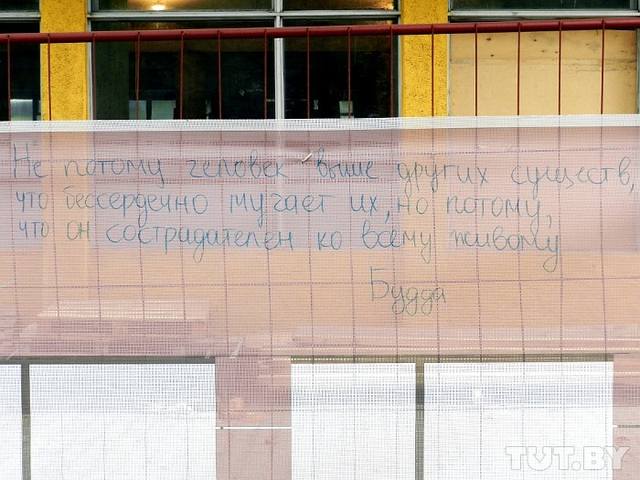 Не потому человек выше других существ,
что бессердечно мучает их, но потому,
что он сострадателен ко всему живому
Будда
TUT.BY